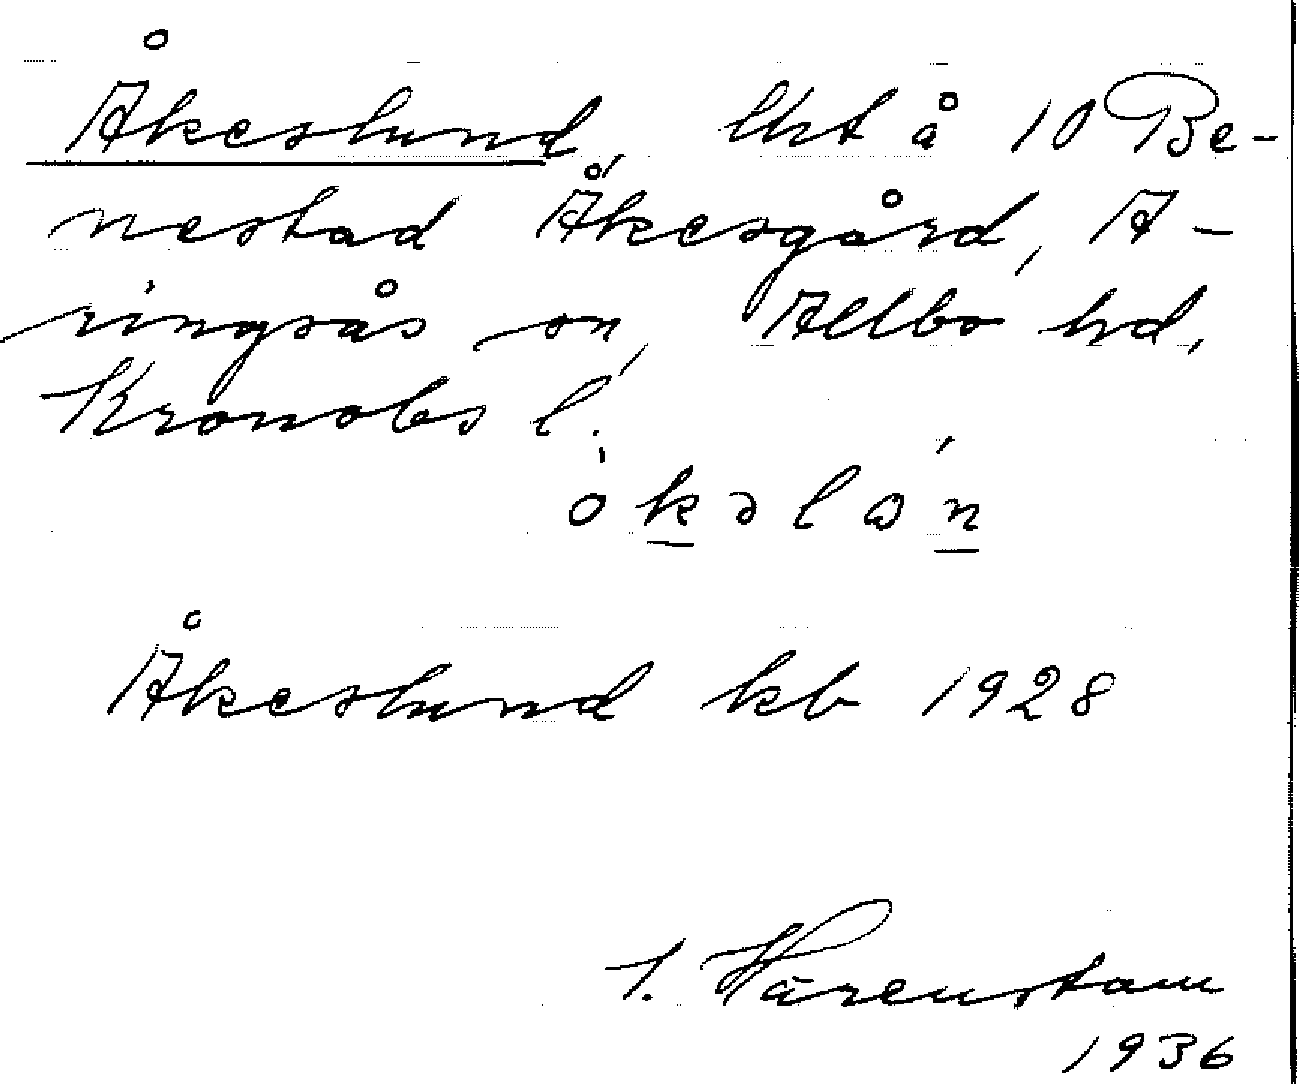 Åkeslund, lht å 10 Be-
nestad Åkesgård, A-
ringsås sn, Allbo hd,
Kronobs l.
Åkeslund kb 1928
Härenstam
1936